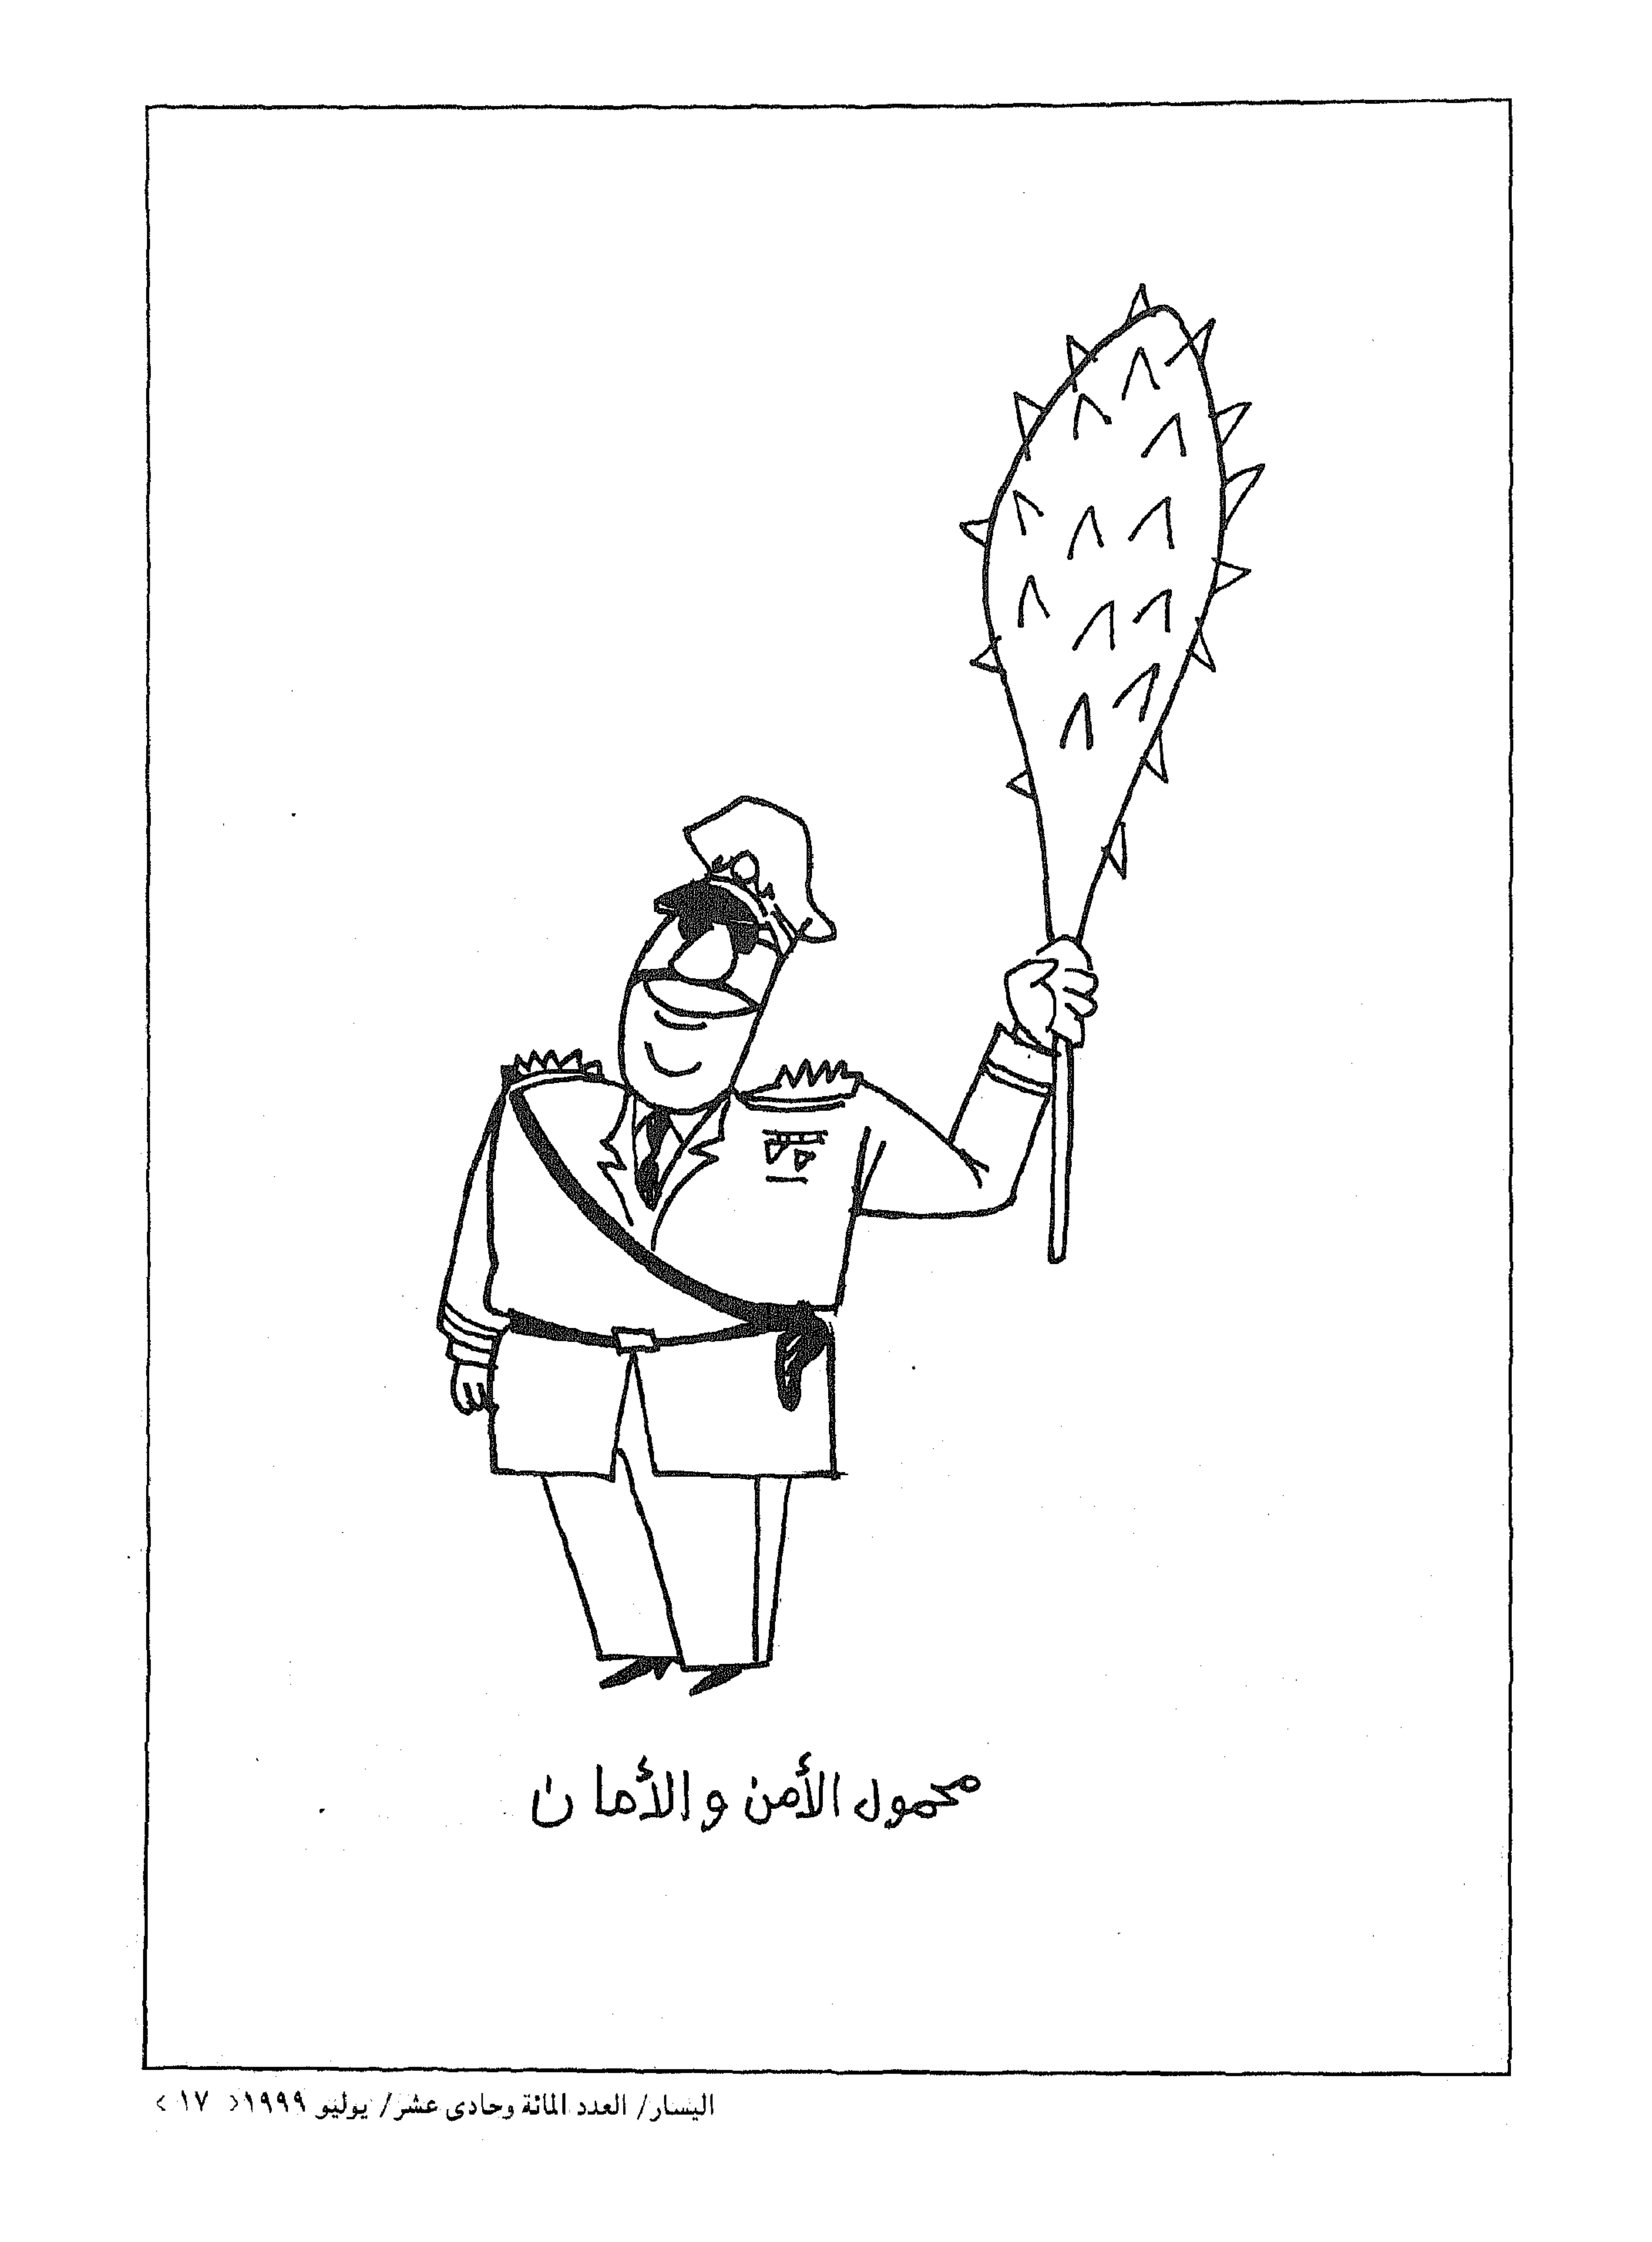 محمول الأمن والأمان
اليسار/ العدد المائة وحادى عشر/ يوليو ١٩٩٩< ١٧ >